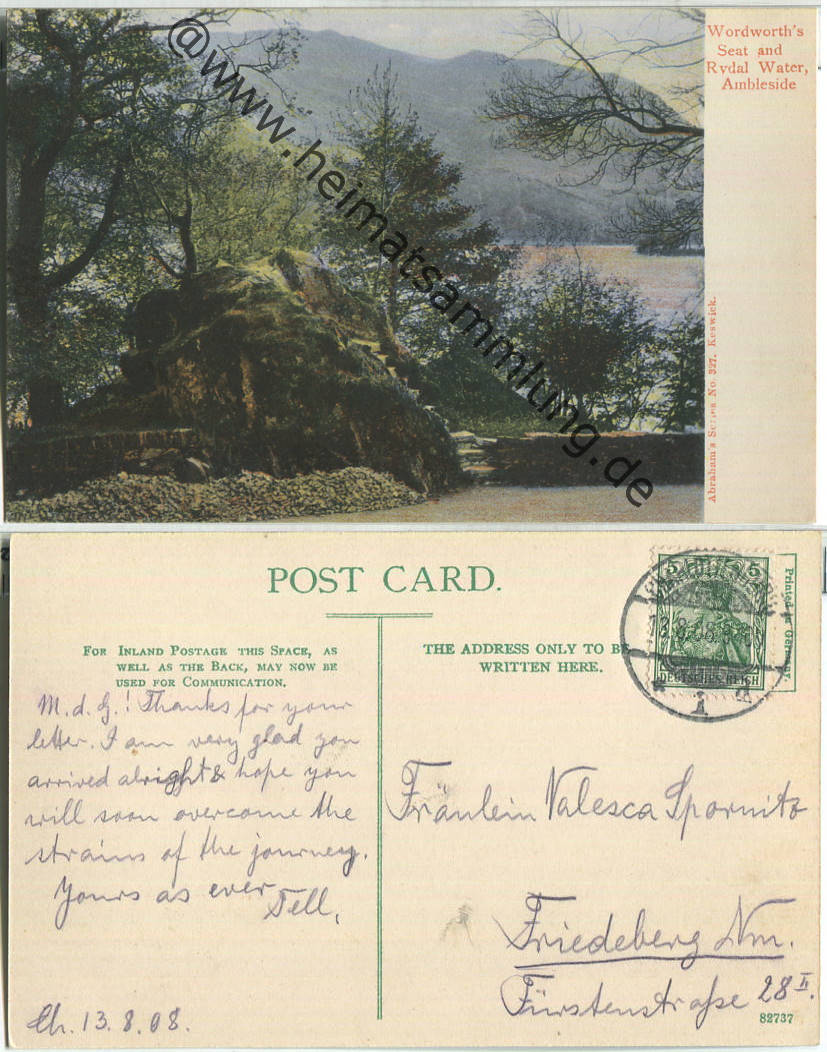 Wordworth's
Seat and
Rydal Water,
Ambleside
Abraham's Series No. 327. Keswick.
@www.heimatsammlung.de
POST CARD.
FOR INLAND POSTAGE THIS SPACE, AS
WELL AS THE BACK, MAY NOW BE
USED FOR COMMUNICATION.
THE ADDRESS ONLY TO BE
WRITTEN HERE.
Printed in Germany.
5 5
DEUTSCHES REICH
13.8.08
M. d. G.! Thanks for your
letter. I am very glad you
arrived alright & hope you
will soon overcome the
strains of the journey.
Yours as ever
Tell.
Ch. 13. 8. 08.
Fräulein Valesca Spornitz
Friedeberg Nm.
Fürstenstraße 28 II.
82737